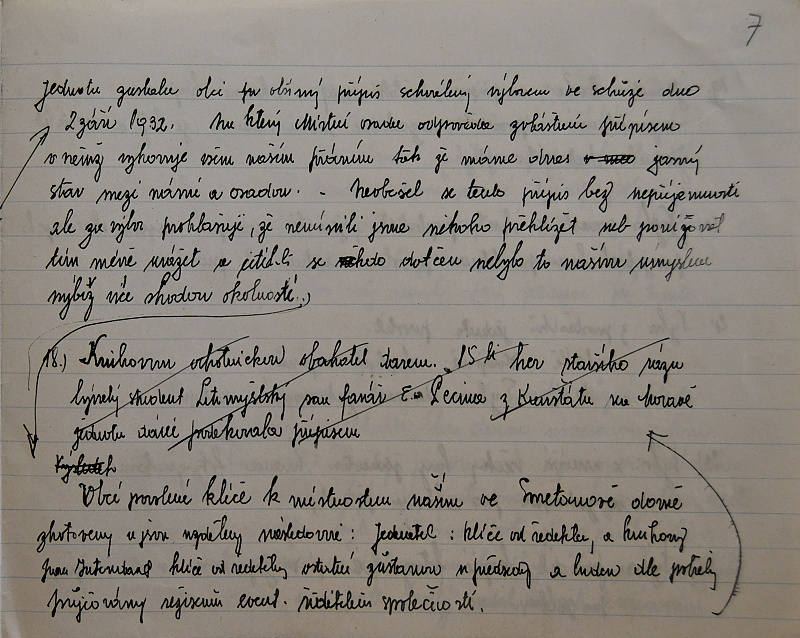 7
Jednotu zaslala obci po obšírný přípis schválený výborem ve schůzi dne
2 září 1932. Na který Místní osada odpověděla zvláštním přípisem
v němž vyhovuje všem našim přáním tak že máme dnes jasný
stav mezi námi a osadou. - Neobešel se tento přípis bez nepříjemností
ale za výbor prohlašuji, že nemínili jsme nikoho přehlížet neb ponižovat
tím méně urážet a cítil-li se někdo dotčen nebylo to naším úmyslem
nýbrž více shodou okolností.)
18.) Knihovnu ochotnickou obohatil darem 15ti her staršího rázu
bývalý student Litomyšlský pan farář Pecina z Kunštátu na Moravě
jednota dárci poděkovala přípisem
Obcí povolené klíče k místnostem našim ve Smetanově domě
zhotoveny a jsou rozděleny následovně: Jednatel: klíče od ředitelny, a knihovny
Pan Intendant klíče od ředitelny ostatní zůstanou u předsedy a budou dle potřeby
půjčovány režisérům event. ředitelům společností.